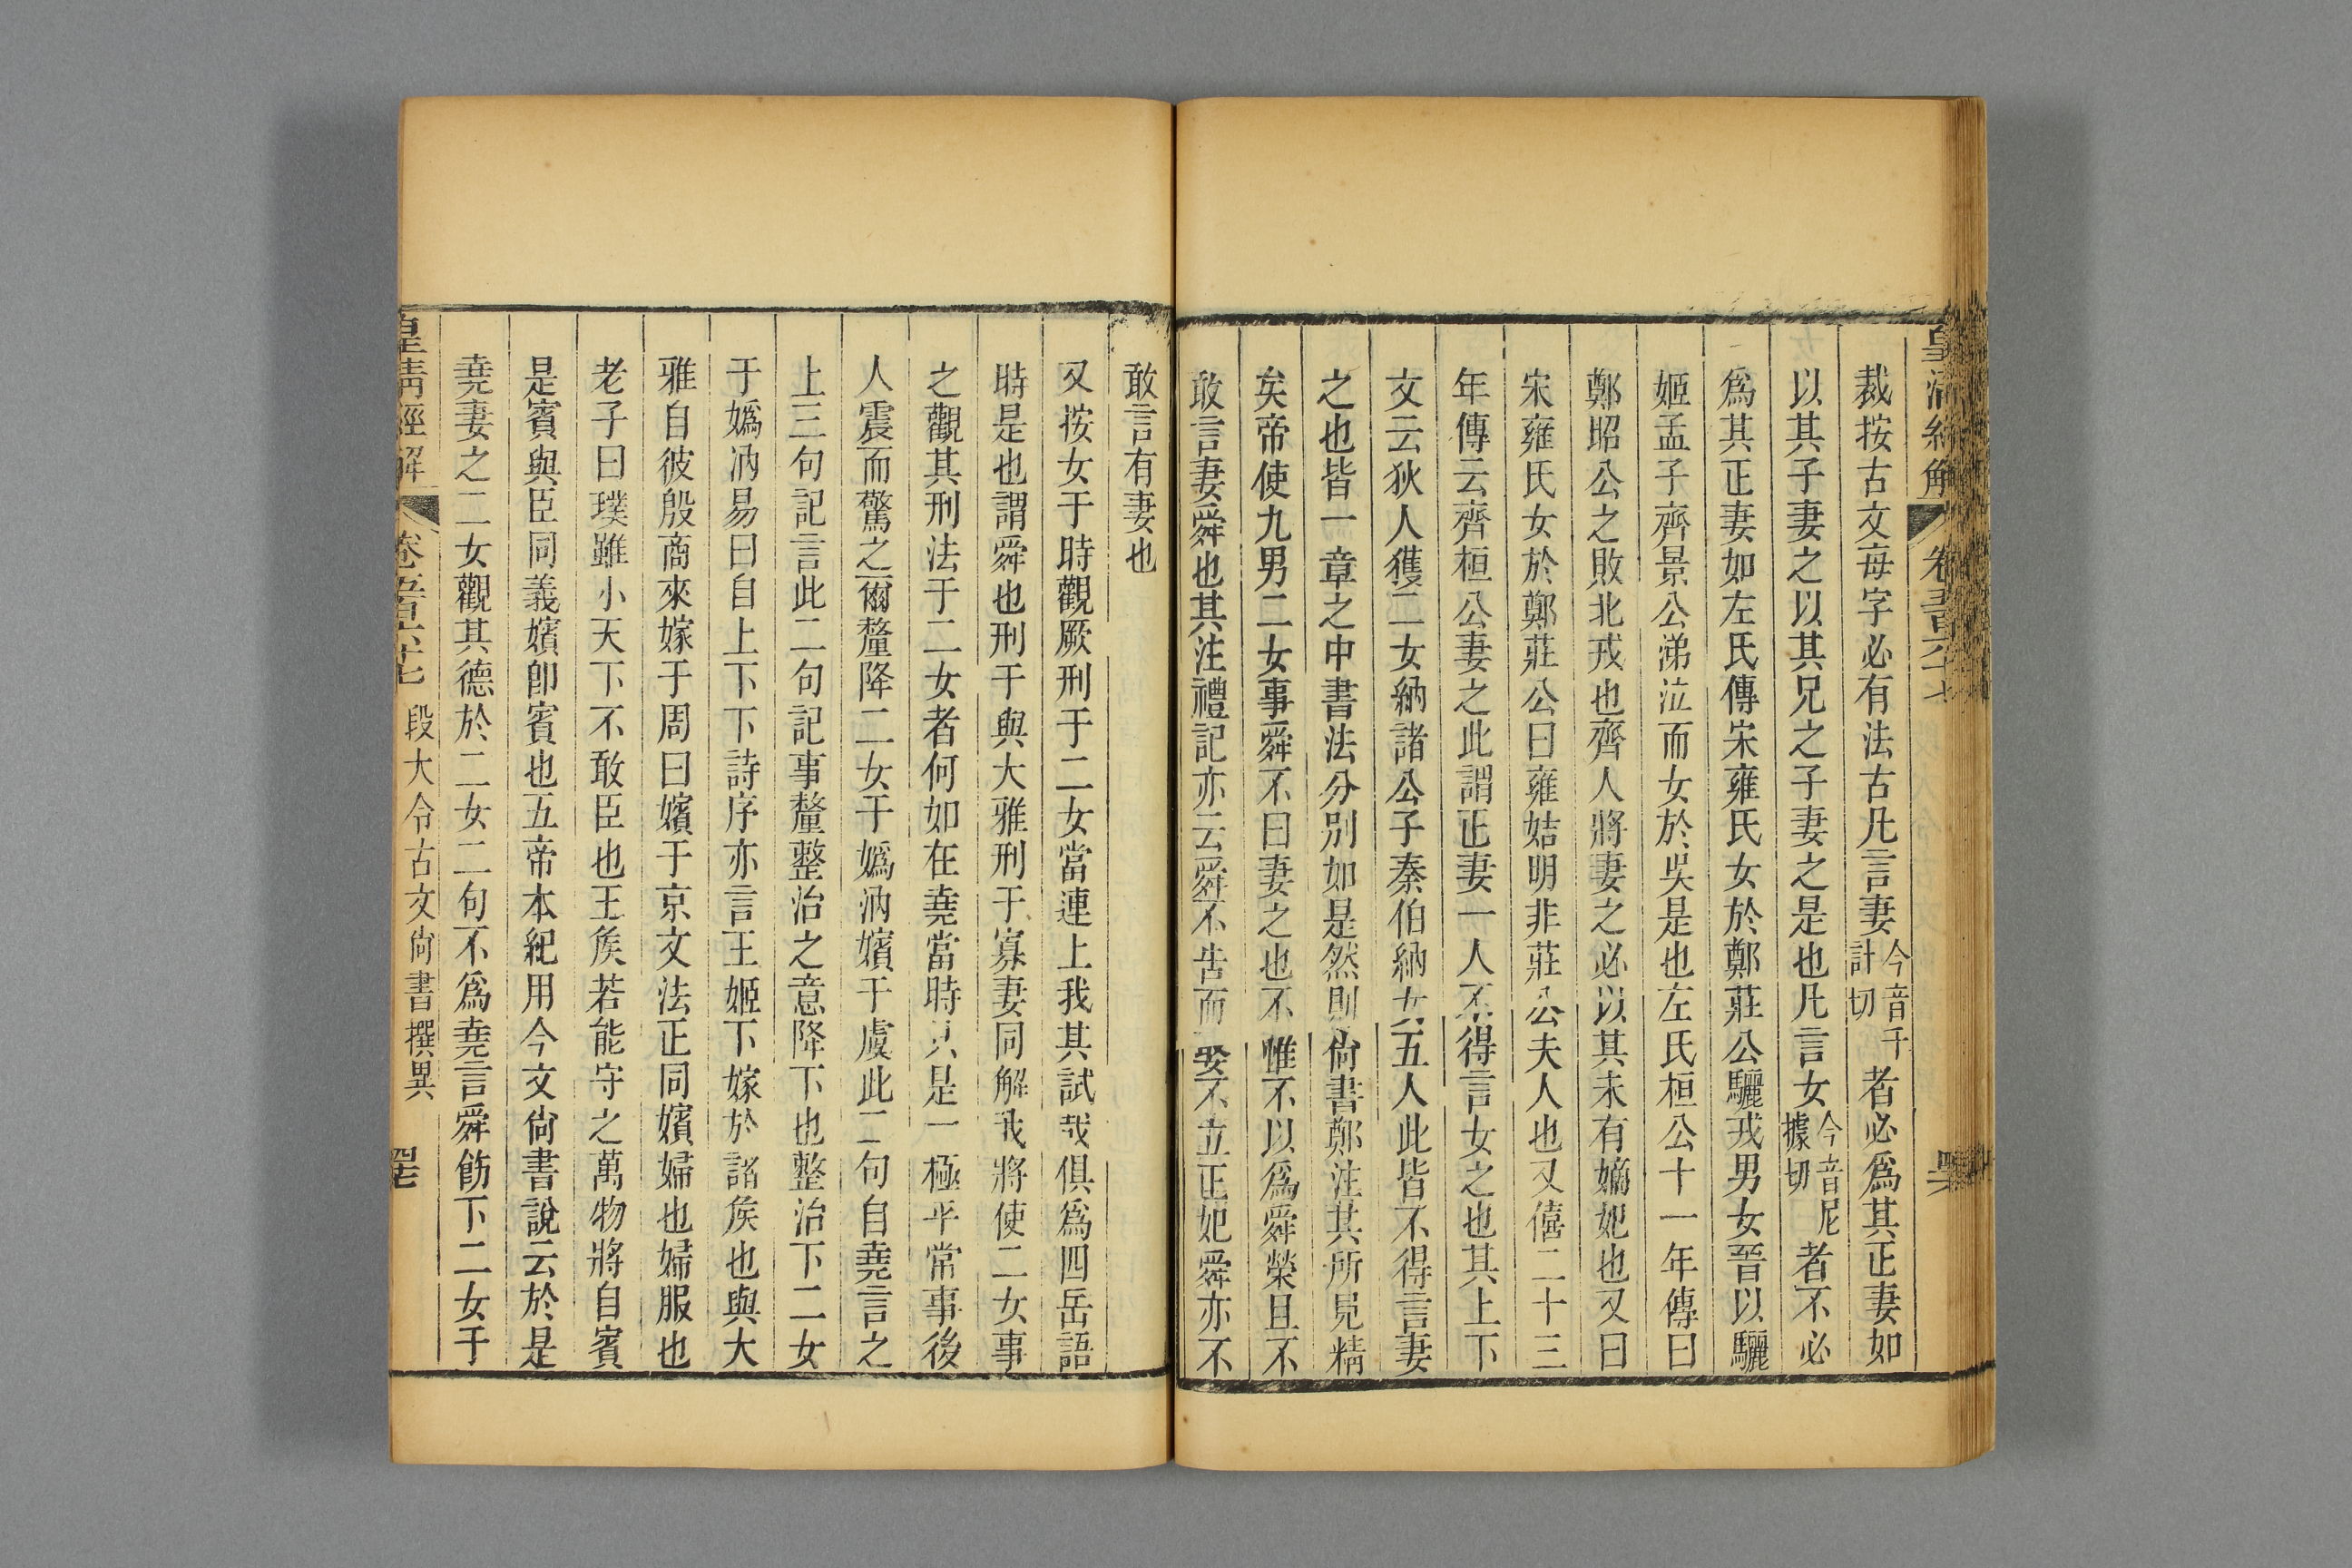 皇清經解 卷五百六十七 四六
裁按古文每字必有法古凡言妻今音千計切者必爲其正妻如
以其子妻之以其兄之子妻之是也凡言女今音尼據切者不必
爲其正妻如左氏傳宋雍氏女於鄭莊公驪戎男女晉以驪
姬孟子齊景公涕泣而女於吳是也左氏桓公十一年傳曰
鄭昭公之敗北戎也齊人將妻之必以其未有嫡妃也又曰
宋雍氏女於鄭莊公曰雍姞明非莊公夫人也又僖二十三
年傳云齊桓公妻之此謂正妻一人不得言女之也其上下
文云狄人獲二女納諸公子秦伯納女五人此皆不得言妻
之也皆一章之中書法分別如是然則尙書鄭注其所見精
矣帝使九男二女事舜不曰妻之也不惟不以爲舜榮且不
敢言妻舜也其注禮記亦云舜不告而娶不立正妃舜亦不
敢言有妻也
又按女于時觀厥刑于二女當連上我其試哉俱爲四岳語
時是也謂舜也刑于與大雅刑于寡妻同解我將使二女事
之觀其刑法于二女者何如在堯當時只是一極平常事後
人震而驚之爾釐降二女于嬀汭嬪于虞此二句自堯言之
上三句記言此二句記事釐整治之意降下也整治下二女
于嬀汭易曰自上下下詩序亦言王姬下嫁於諸矦也與大
雅自彼殷商來嫁于周曰嬪于京文法正同嬪婦也婦服也
老子曰璞雖小天下不敢臣也王矦若能守之萬物將自賓
是賓與臣同義嬪卽賓也五帝本紀用今文尙書說云於是
堯妻之二女觀其德於二女二句不爲堯言舜飭下二女于
皇清經解 卷五百六十七 段大令古文尙書撰異 四七